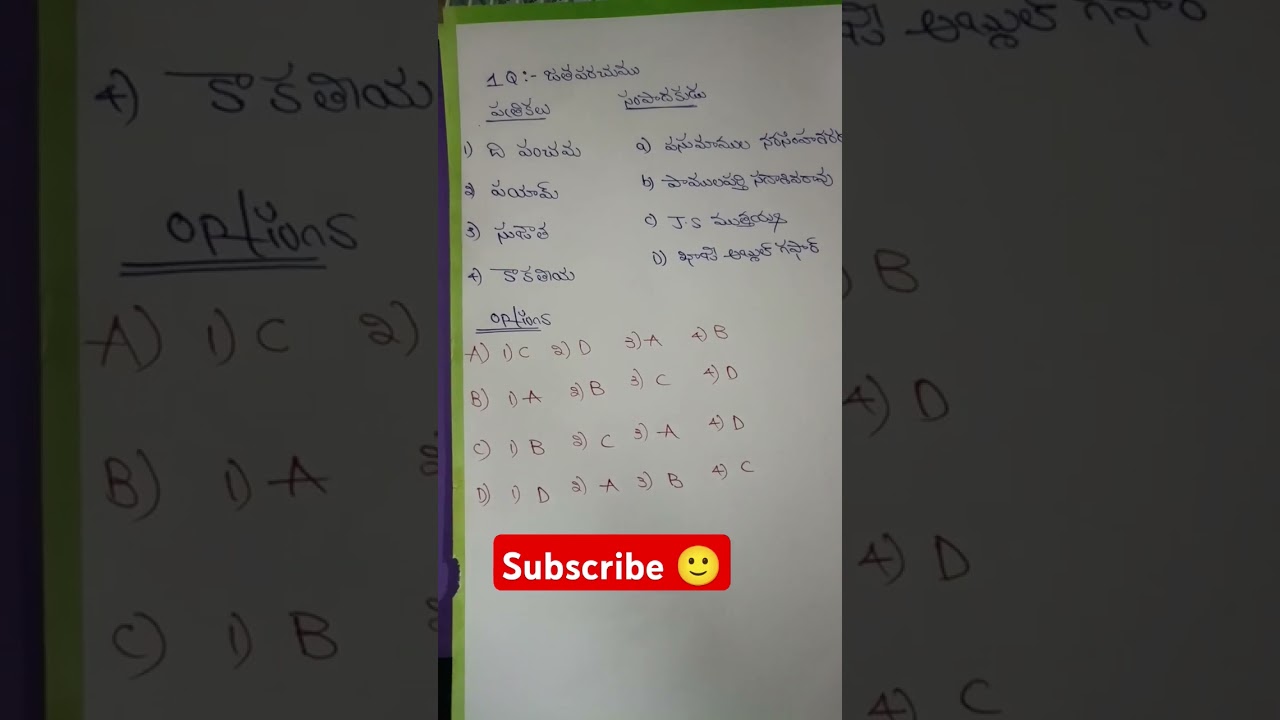 1Q:- జతపరచుము
పత్రికలు సంపాదకుడు
1) ది పంచమ a) పసుమాముల నరసింహశర్మ
2) పయామ్ b) పాములపర్తి సదాశివరావు
3) సుజాత c) J.S ముత్తయ్య
4) కాకతీయ D) ఖాజీ అబ్దుల్ గఫార్
options
A) 1) C 2) D 3) A 4) B
B) 1) A 2) B 3) C 4) D
C) 1) B 2) C 3) A 4) D
D) 1) D 2) A 3) B 4) C
Subscribe 🙂
4) కాకతీయ
options
A) 1) C 2)
B) 1) A
C) 1) B
అబ్దుల్ గఫార్
B
4) D
4) D
4) C